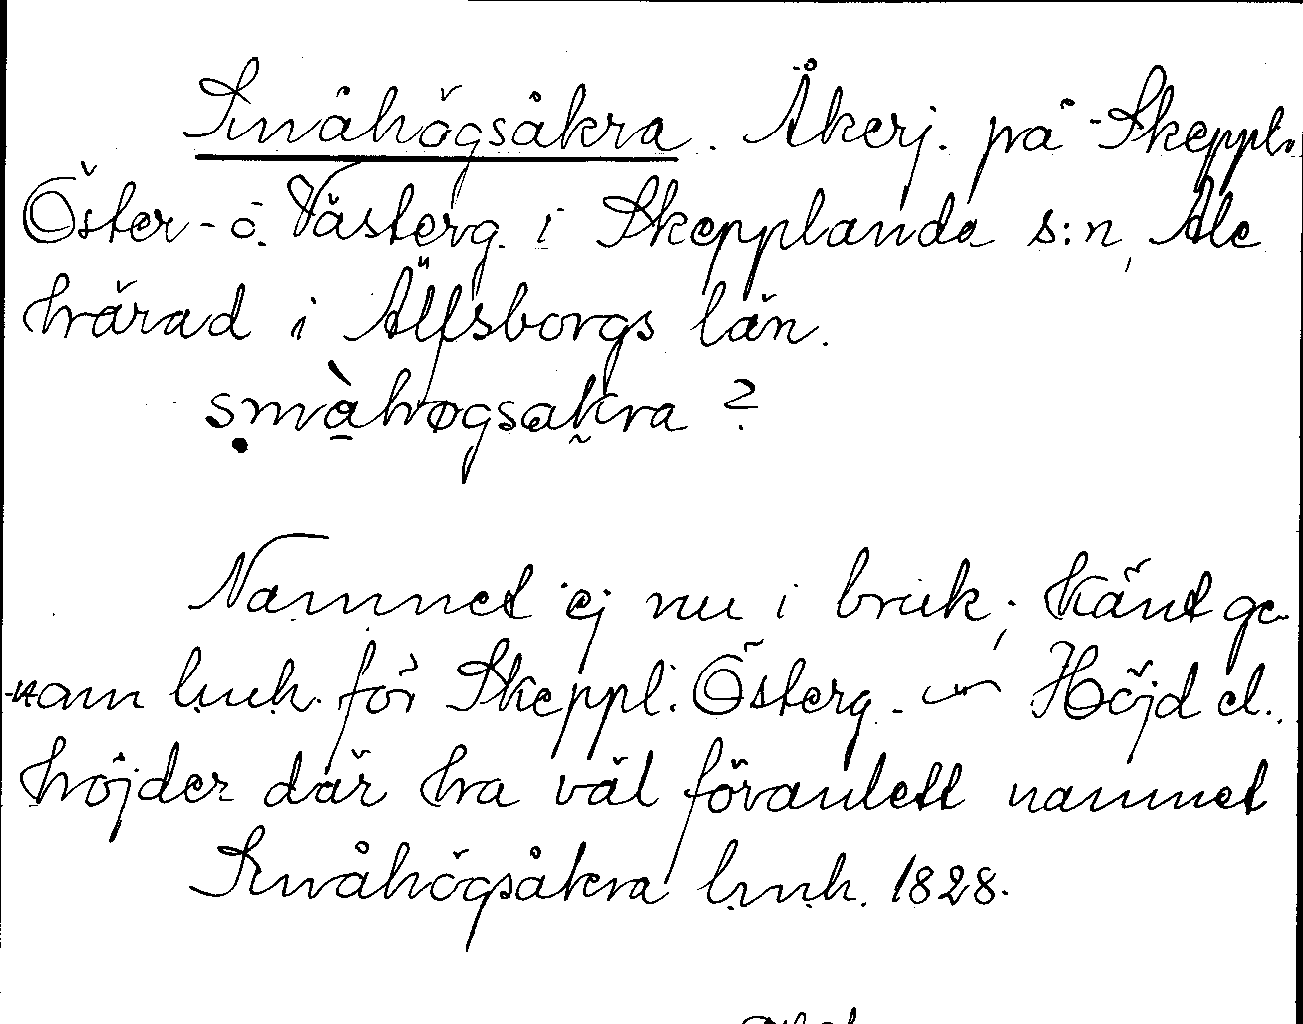 Småhögsåkra. Åkerj. på Skeppl.
Öster- o. Västerg. i Skepplanda s:n, Ale
härad i Älfsborgs län.
småhøgsakra ?
Namnet ej nu i bruk; känt ge-
nom l.m.h. för Skeppl. Österg. — Höjd el.
höjder där ha väl förånlett namnet
Småhögsåkra l.m.h. 1828.